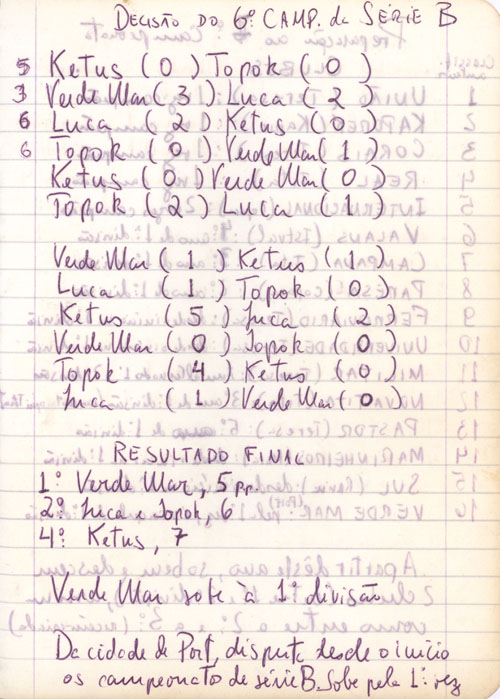 DECISÃO DO 6º CAMP. da SÉRIE B
5 Ketus (0) Topok (0)
3 Verde Mar (3) Luca (2)
6 Luca (2) Ketus (0)
6 Topok (0) Verde Mar (1)
Ketus (0) Verde Mar (0)
Topok (2) Luca (1)
Verde Mar (1) Ketus (1)
Luca (1) Topok (0)
Ketus (5) Luca (2)
Verde Mar (0) Topok (0)
Topok (4) Ketus (0)
Luca (1) Verde Mar (0)
RESULTADO FINAL
1º Verde Mar, 5 pp.
2º Luca e Topok, 6
4º Ketus, 7
Verde Mar sobe à 1ª divisão
Da cidade de Port, disputa desde o início
os campeonato de série B. Sobe pela 1ª vez